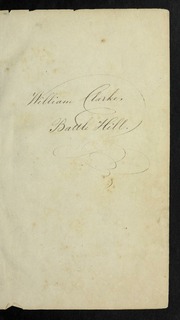 William Clarke,
Battle Hill.